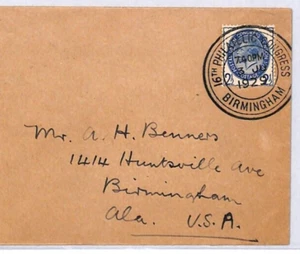 16TH PHILATELIC CONGRESS
1929
BIRMINGHAM
2½ 2½
Mr. A. H. Benners
1414 Huntsville Ave
Birmingham
Ala. U.S.A.